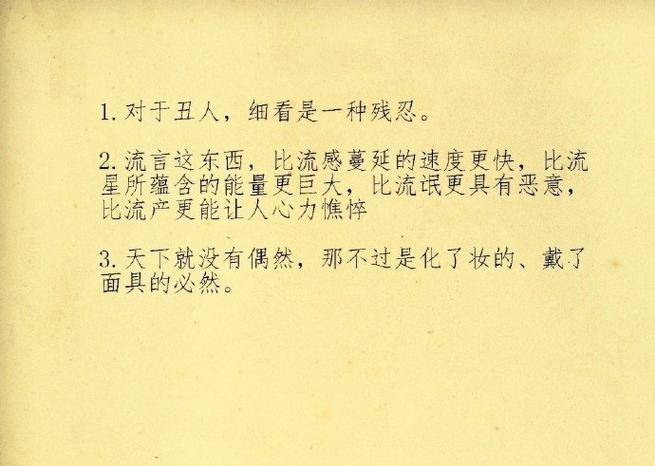 1. 对于丑人，细看是一种残忍。
2. 流言这东西，比流感蔓延的速度更快，比流
星所蕴含的能量更巨大，比流氓更具有恶意，
比流产更能让人心力憔悴
3. 天下就没有偶然，那不过是化了妆的、戴了
面具的必然。